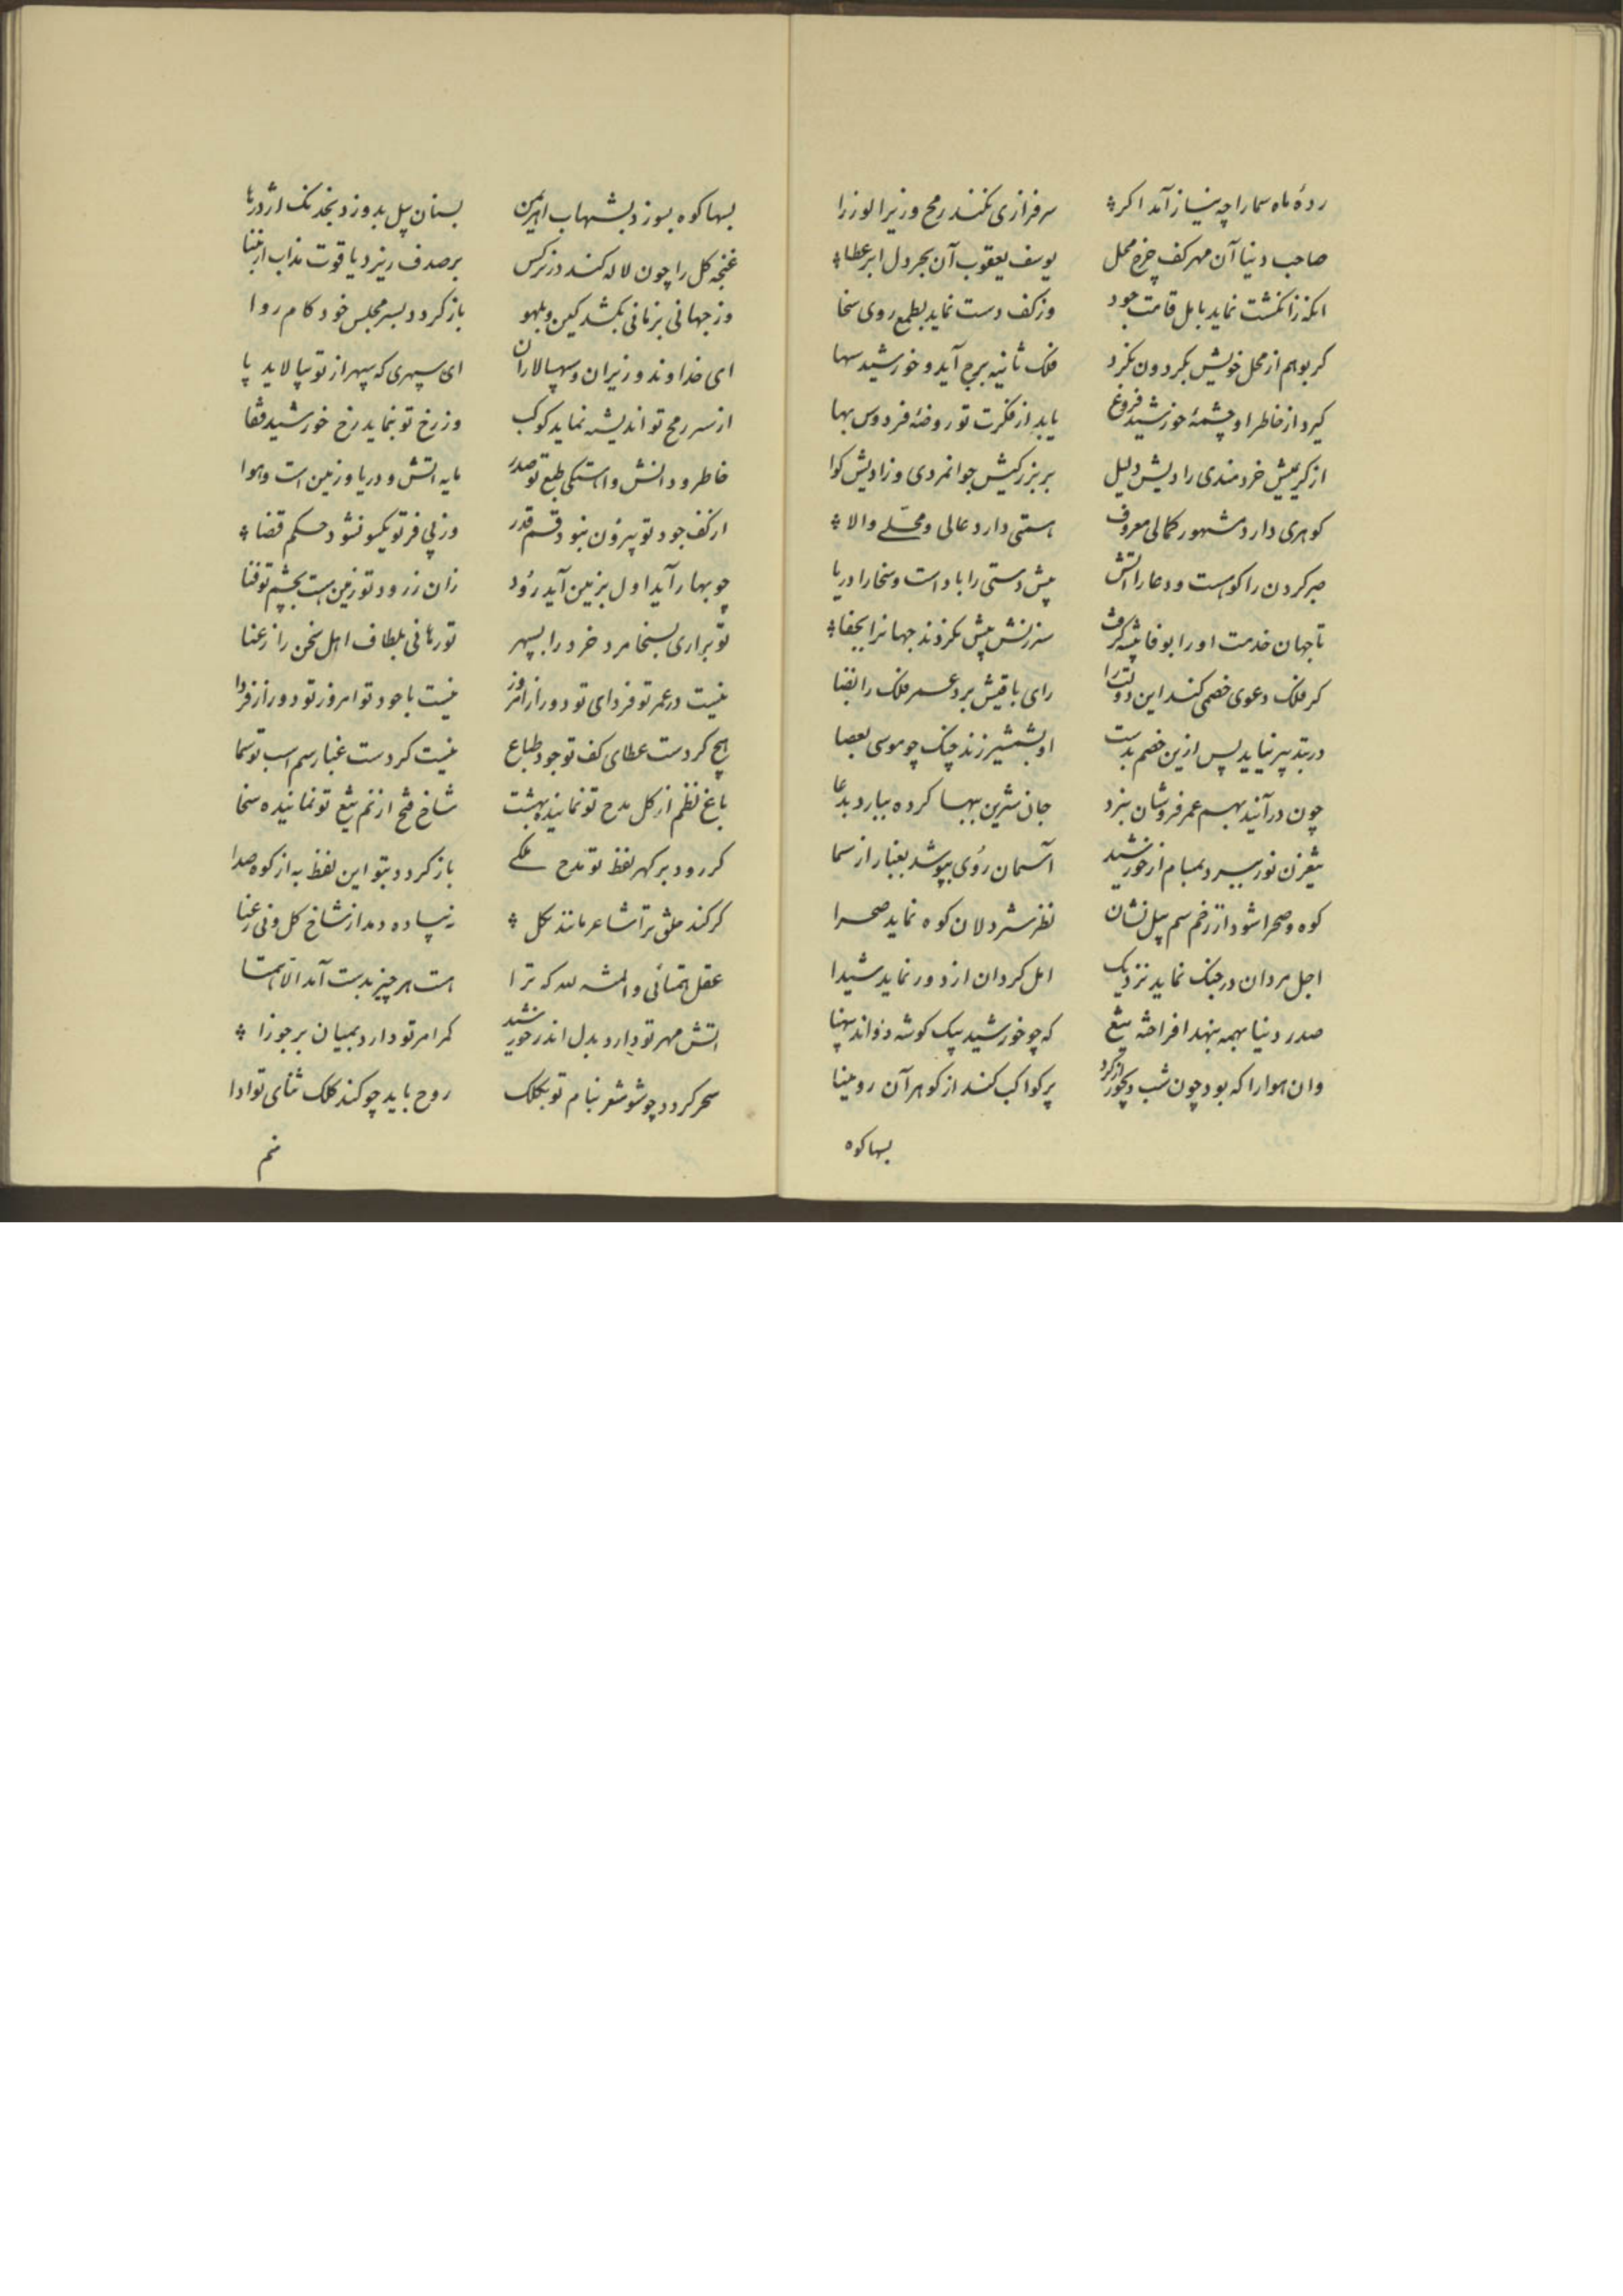 ردهٔ ماه سما را چه نیاز آمد اکر
سرفرازی نکند رمح وزیر الوزرا
صاحب دنیا آن مهر کف چرخ محل
یوسف یعقوب آن بحر دل ابر عطا
انکه زانکشت نماید بامل قامت جود
وز کف دست نماید بطمع روی سخا
کر بوهم از محل خویش بکردون نکرد
فلک ثانیه برج آید و خورشید سها
کیرد از خاطر او چشمهٔ خورشید فروغ
یابد از فکرت تو روضهٔ فردوس بها
از کریمیش خردمندی و رادیش دلیل
بر بزرکیش جوانمردی وزادیش کوا
کوهری دارد مشهور کمالی معروف
همتی دارد عالی و محلی والا
صبر کردن را کوهست و دعا را اتش
پیش دستی را بادست و سخا را دریا
تا جهان خدمت او را بوفا پیشه کرفت
سرزنش پیش نکردند جهانرا بجفا
کر فلک دعوی خصمی کند این دولت را
رای باقیش برد عمر فلک را بفنا
در بتدبیر نیاید پس ازین خصم بدست
او بشمشیر زند چنک چو موسی بعصا
چون درآیند بهم عمر فروشان بنبرد
جان شرین ببها کرده ببازد بدعا
تیغ زن نور ببرد بمیام از خورشید
آسمان رؤی بپوشد بغبار از سما
کوه و صحرا شود از زخم سم پیل نشان
نظر شردلان کوه نماید صحرا
اجل مردان در جنک نماید نزدیک
امل کردان از دور نماید شیدا
صدر دنیا بهمه بنهد افراخته تیغ
که چو خورشید بیک کوشه دواند پهنا
وان هوا را که بود چون شب دیجور از کرد
پر کواکب کند از کوهر آن رو مینا
بسها کوه
بسها کوه بسوزد بشهاب اهریمن
بسنان پیل بدوزد بخدنک اژدرها
غنچه کل را چون لاله کند در نرکس
بر صدف ریزد یاقوت مذاب از مینا
وز جهانی بزمانی بکشد کین و بلهو
باز کردد بسر مجلس خود کام روا
ای خداوند وزیران و سپهسالاران
ای سپهری که سپهر از تو نیالاید پا
از سر رمح تو اندیشه نماید کوکب
وز رخ تو بنماید رخ خورشید قفا
خاطر و دانش و اهستکی طبع تو صدر
مایه اتش و دریا و زمین است و هوا
از کف جود تو بیرون نبود قسم قدر
وز پی فر تو یکسو نشود حکم قضا
چو بهار آید اول بزمین آید رود
زان ز رود تو زمین است بچشم تو فنا
تو براری بسخا مرد خرد را بسپهر
تو رهانی بلطاف اهل سخن را ز عنا
نیست در عمر تو فردای تو دور از امروز
نیست با جود تو امروز تو دور از فردا
هیچ کردست عطای کف تو جود طباع
نیست کردست غبار سم اسب تو سما
باغ نظم از کل مدح تو نمانیده بهشت
شاخ فتح از نم تیغ تو نمانیده سخا
کر رود بر کهر لفظ تو مدح ملکی
باز کردد بتو این لفظ به از کوه صدا
کر کند خلق ترا شاعر مانند بکل
نه پیاده دمد از شاخ کل ونی رعنا
عقل همتائی والمنه لله که ترا
هست هر چیز بدست آمد الا همتا
اتش مهر تو دارد بدل اندر خورشید
کمر امر تو دارد بمیان بر جوزا
سحر کردد چو شود شعر بنام تو بکلک
روح باید چو کند کلک ثنای تو ادا
منم